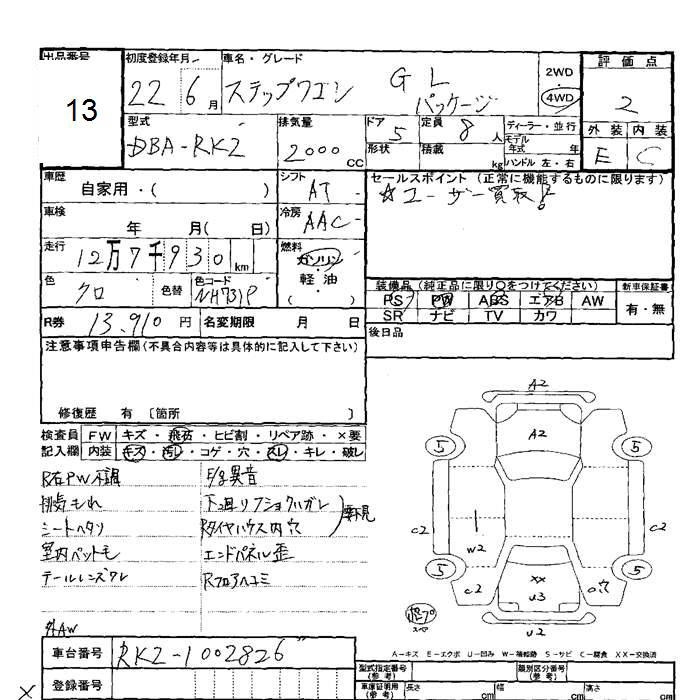 出品番号
13
初度登録年月
22 6月
車名・グレード
ステップワゴン GL
パッケージ
2WD
4WD
評価点
2
外装 内装
E C
型式
DBA-RK2
排気量
2000 CC
ドア 5
形状
定員 8人
積載 kg
ディーラー・並行
モデル年式 年
ハンドル 左・右
車歴
自家用・( )
シフト
AT
セールスポイント (正常に機能するものに限ります)
☆ユーザー買取!
車検
年 月( 日)
冷房
AAC
走行
12万7千930km
燃料
ガソリン
・
軽油
( )
色
クロ
色替
色コード
NH731P
装備品(純正品に限り○をつけてください)
新車保証書
PS PW ABS エアB AW
SR ナビ TV カワ
有・無
R券 13,910円
名変期限 月 日
後日品
注意事項申告欄(不具合内容等は具体的に記入して下さい)
修復歴 有 〔箇所 〕
検査員記入欄
FW キズ・飛石・ヒビ割・リペア跡・×要
内装 キズ・汚レ・コゲ・穴・スレ・キレ・破レ
R右PW不調
排気もれ
シートヘタリ
室内ペットモ
テールレンズワレ
F/g異音
下廻リ
Rタイヤハウス内穴
エンドパネル歪
Rフロアヘコミ
外AW
A2
A2
5 5
C2 C2
W2
5 5
C2
XX
U3
穴
U2
スペ
A－キズ E－エクボ U－凹み W－補修跡 S－サビ C－腐食 XX－交換済
車台番号 RK2-1002826
登録番号
型式指定番号(参考)
類別区分番号(参考)
車庫証明用(参考)
長さ cm
幅 cm
高さ cm
×